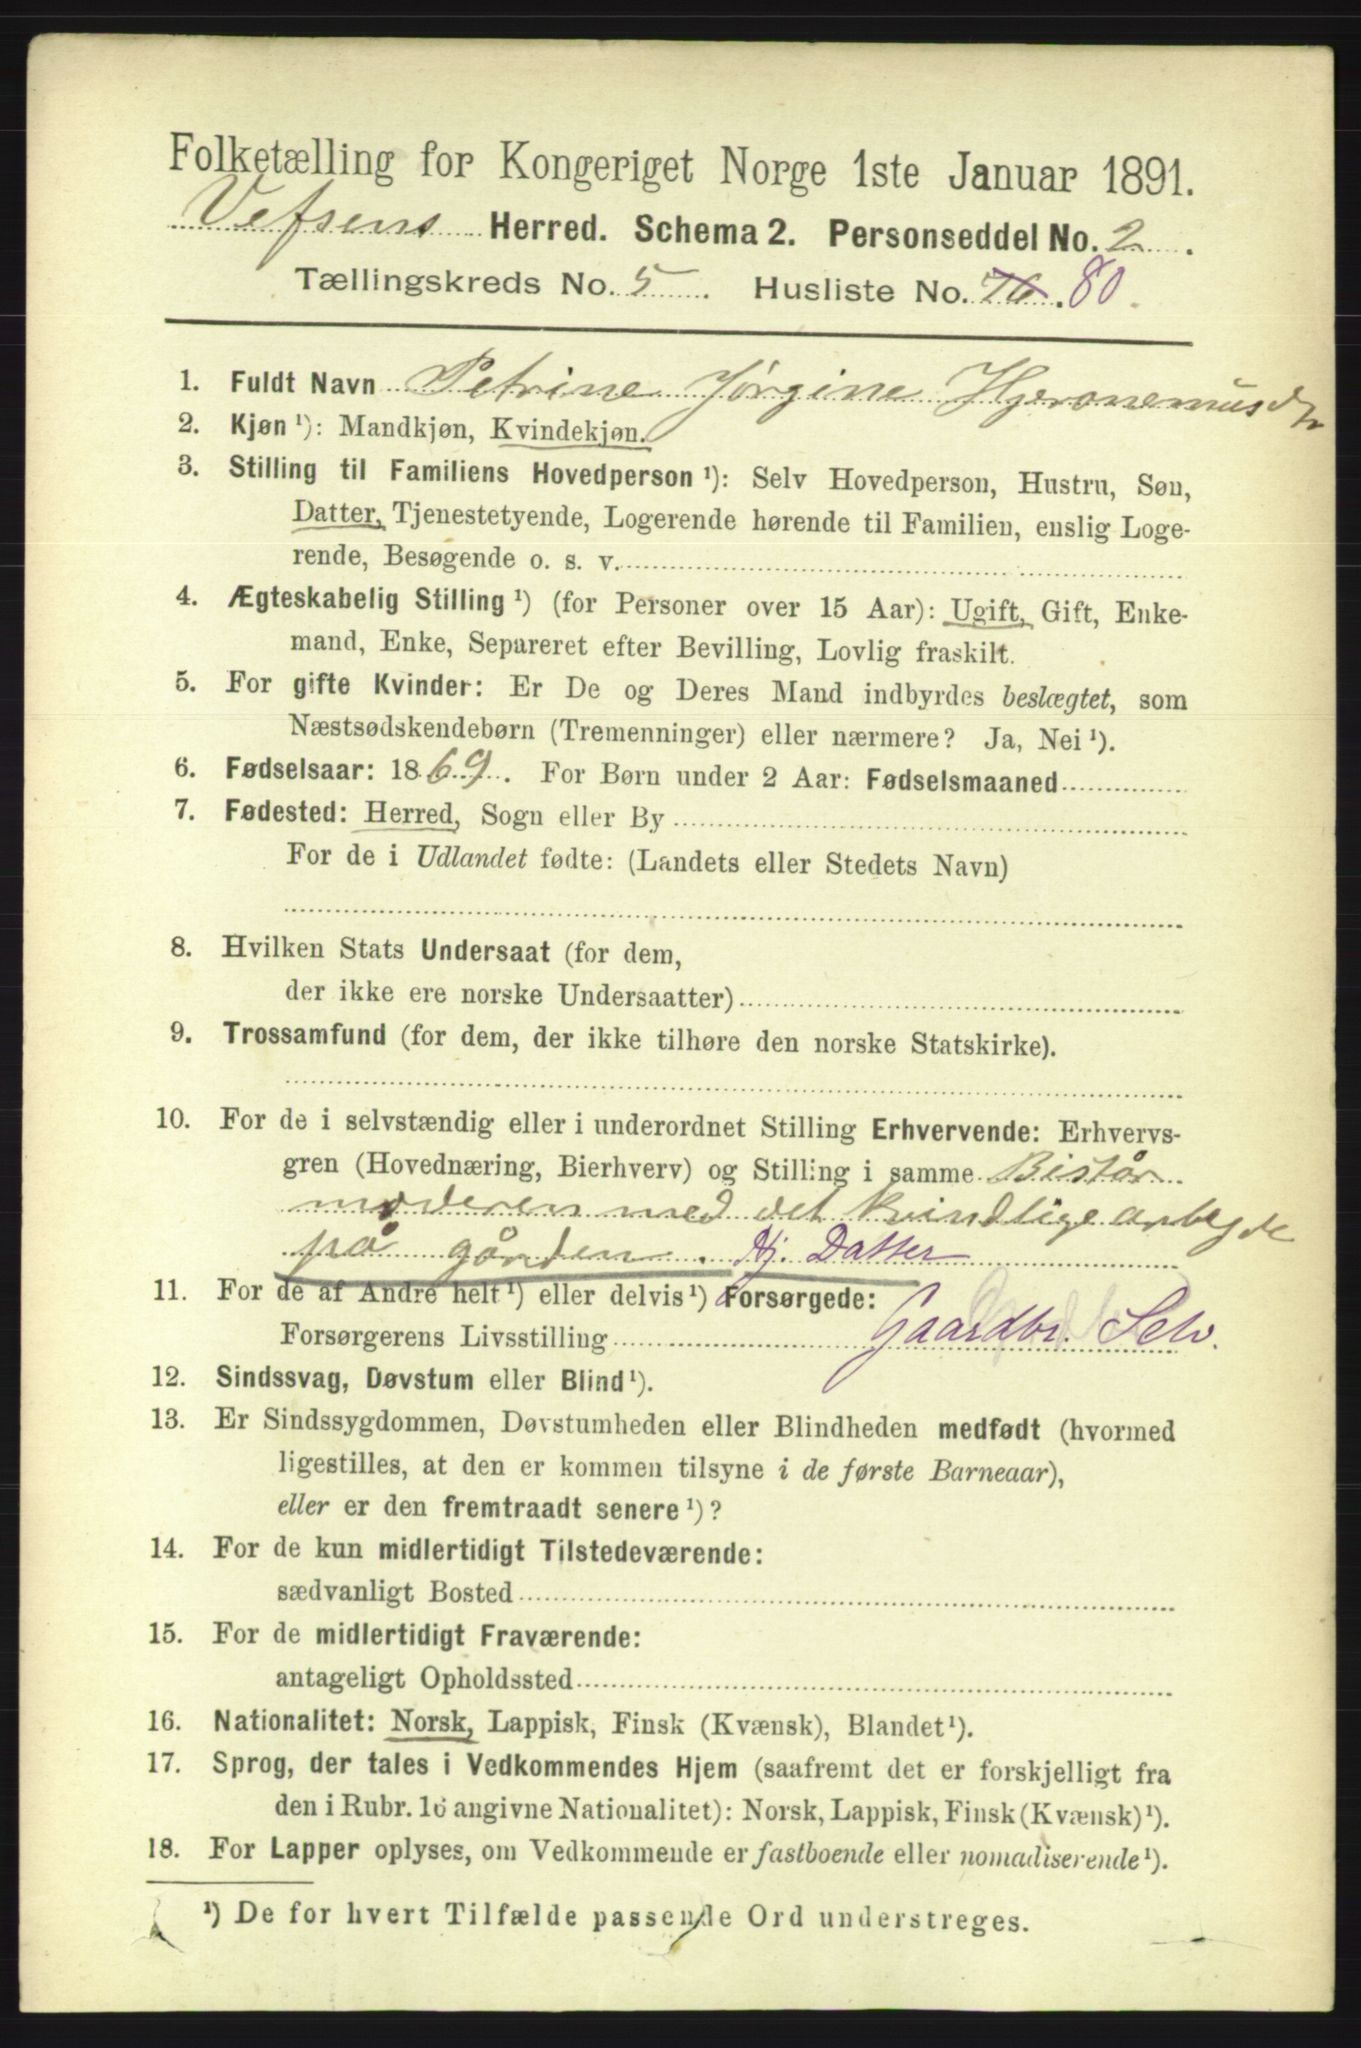 Folketælling for Kongeriget Norge 1ste Januar 1891.
Vefsens Herred. Schema 2. Personseddel No. 2.
Tællingskreds No. 5. Husliste No. 76. 80.
1. Fuldt Navn Petrine Jørgine Hjeronemusdtr
2. Kjøn ¹): Mandkjøn, Kvindekjøn.
3. Stilling til Familiens Hovedperson ¹): Selv Hovedperson, Hustru, Søn,
Datter, Tjenestetyende, Logerende hørende til Familien, enslig Loge-
rende, Besøgende o. s. v.
4. Ægteskabelig Stilling ¹) (for Personer over 15 Aar): Ugift, Gift, Enke-
mand, Enke, Separeret efter Bevilling, Lovlig fraskilt.
5. For gifte Kvinder: Er De og Deres Mand indbyrdes beslægtet, som
Næstsødskendebørn (Tremenninger) eller nærmere? Ja, Nei ¹).
6. Fødselsaar: 1869. For Børn under 2 Aar: Fødselsmaaned
7. Fødested: Herred, Sogn eller By
For de i Udlandet fødte: (Landets eller Stedets Navn)
8. Hvilken Stats Undersaat (for dem,
der ikke ere norske Undersaatter)
9. Trossamfund (for dem, der ikke tilhøre den norske Statskirke).
10. For de i selvstændig eller i underordnet Stilling Erhvervende: Erhvervs-
gren (Hovednæring, Bierhverv) og Stilling i samme Bistår
moderen med det kvindlige arbeyde
på gården. Hj. Datter
11. For de af Andre helt ¹) eller delvis ¹) Forsørgede:
Forsørgerens Livsstilling Gaardbr. Selv.
12. Sindssvag, Døvstum eller Blind ¹).
13. Er Sindssygdommen, Døvstumheden eller Blindheden medfødt (hvormed
ligestilles, at den er kommen tilsyne i de første Barneaar),
eller er den fremtraadt senere ¹)?
14. For de kun midlertidigt Tilstedeværende:
sædvanligt Bosted
15. For de midlertidigt Fraværende:
antageligt Opholdssted
16. Nationalitet: Norsk, Lappisk, Finsk (Kvænsk), Blandet ¹).
17. Sprog, der tales i Vedkommendes Hjem (saafremt det er forskjelligt fra
den i Rubr. 16 angivne Nationalitet): Norsk, Lappisk, Finsk (Kvænsk) ¹).
18. For Lapper oplyses, om Vedkommende er fastboende eller nomadiserende ¹).
¹) De for hvert Tilfælde passende Ord understreges.